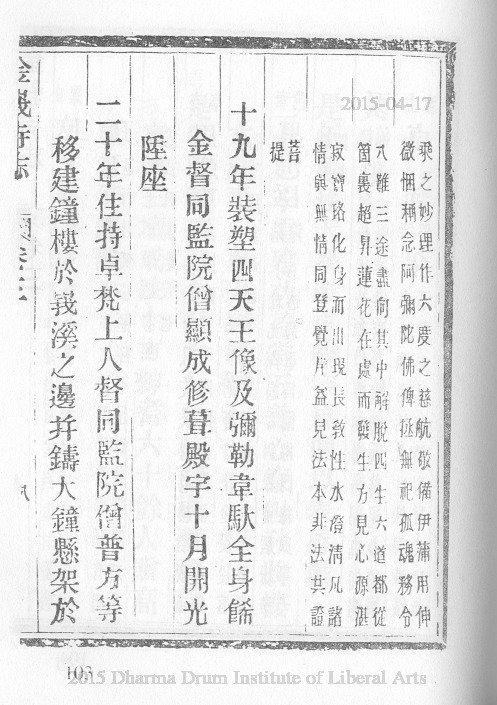 2015-04-17
乘之妙理作六度之慈航敬備伊蒲用伸
微悃稱念阿彌陀佛俾拯無祀孤魂務令
八難三途盡向其中解脫四生六道都從
箇裏超昇蓮花在處而發生方見心源湛
寂寶珞化身而出現長教性水澄清凡諸
情與無情同登覺岸益見法本非法共證
菩
提
十九年裝塑四天王像及彌勒韋馱全身餙
金督同監院僧顯成修葺殿宇十月開光
陞座
二十年住持卓梵上人督同監院僧普方等
移建鐘樓於峩溪之邊幷鑄大鐘懸架於
金峩寺志
卷之
八
103
2015 Dharma Drum Institute of Liberal Arts